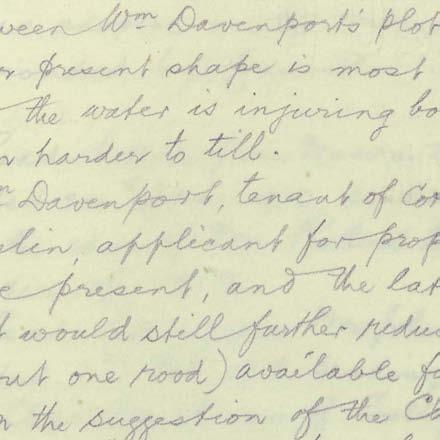 ween Wm Davenport's plot
r present shape is most
the water is injuring bo
n harder to till.
m Davenport, tenant of Cor
lin, applicant for prop
e present, and the lat
t would still further reduc
out one rood) available fo
n the suggestion of the Ch